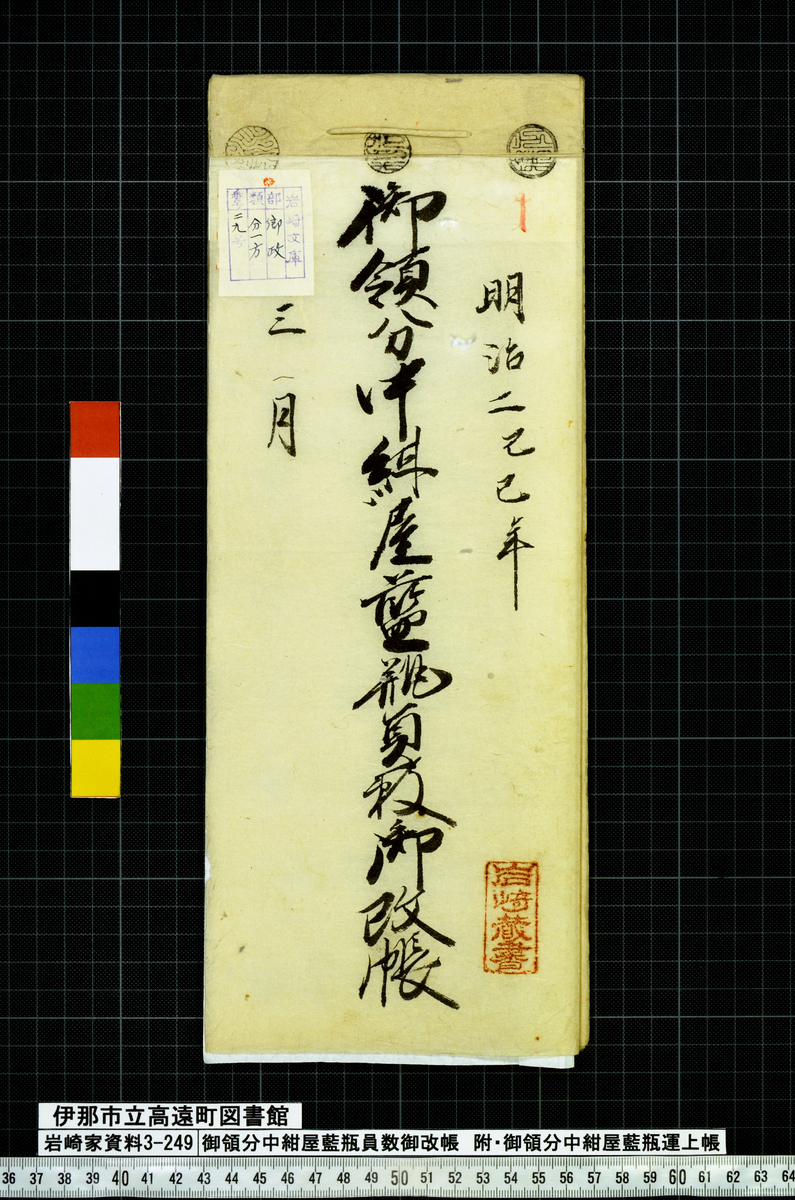 明治二己巳年
御領分中紺屋藍瓶員数御改帳
三月
岩崎文庫
部 御政
類 分一方
番号 二九号
岩崎蔵書
伊那市立高遠町図書館
岩崎家資料3-249 御領分中紺屋藍瓶員数御改帳 附・御領分中紺屋藍瓶運上帳
36 37 38 39 40 41 42 43 44 45 46 47 48 49 50 51 52 53 54 55 56 57 58 59 60 61 62 63 64